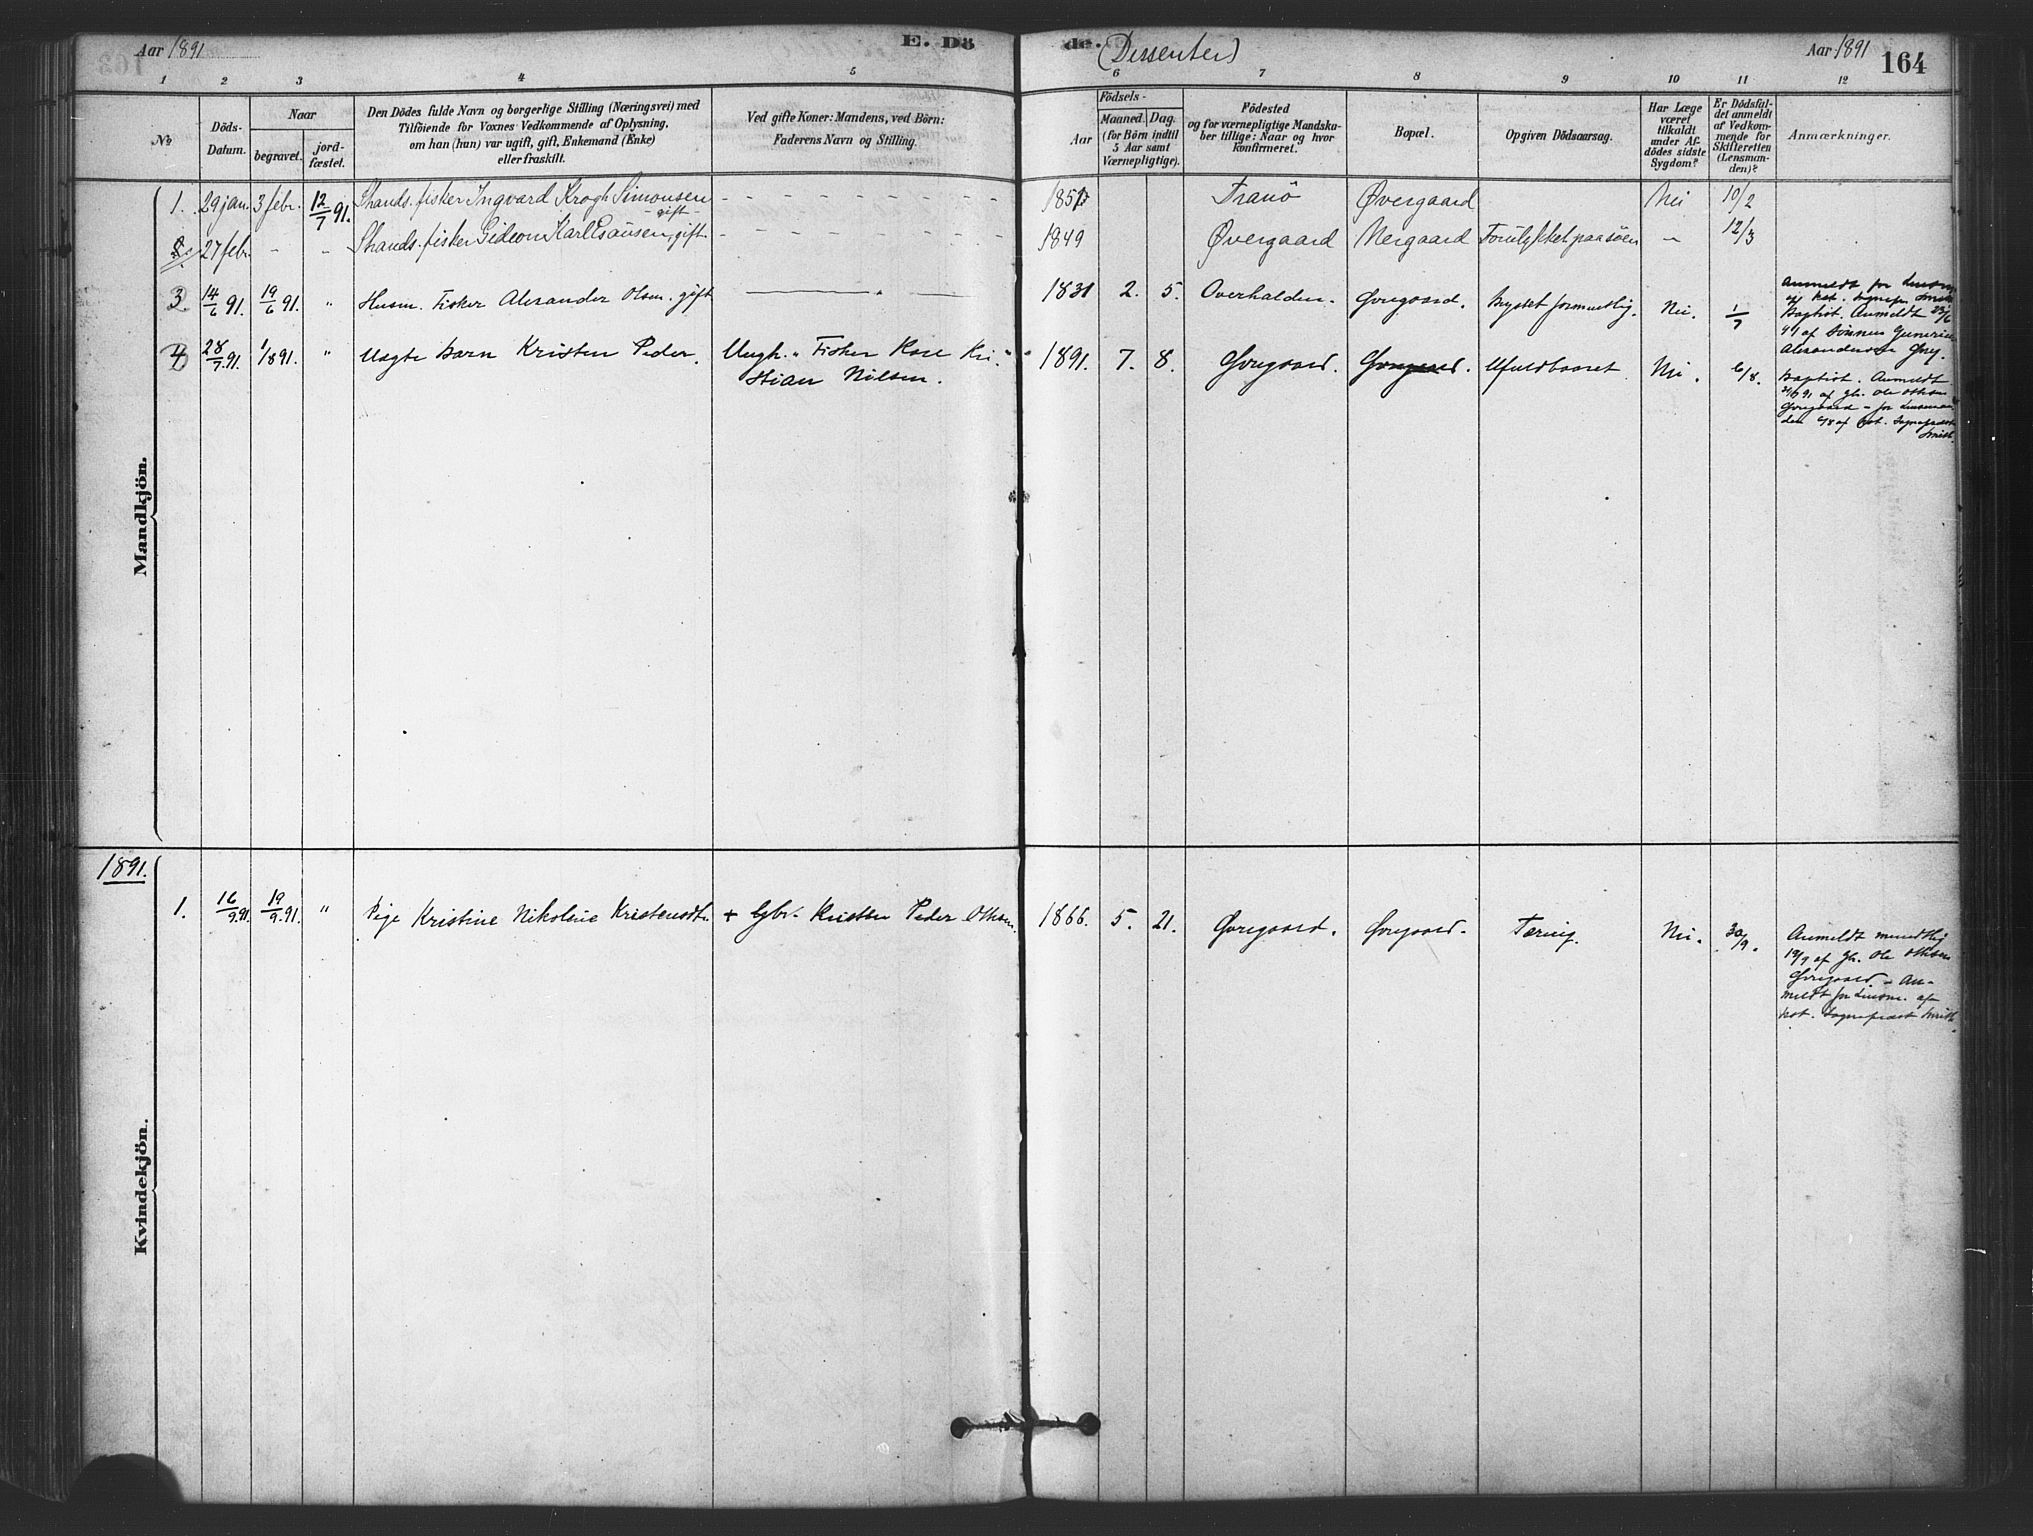 Aar 1891 E. Dö de. (Dissenter) Aar 1891 164
1 2 3 4 5 6 7 8 9 10 11 12
No
Döds-Datum.
Naar
begravet.
jord-fæstet.
Den Dödes fulde Navn og borgerlige Stilling (Næringsvei) med
Tilföiende for Voxnes Vedkommende af Oplysning,
om han (hun) var ugift, gift, Enkemand (Enke)
eller fraskilt.
Ved gifte Koner: Mandens, ved Börn:
Faderens Navn og Stilling.
Födsels-
Aar
Maaned. Dag.
(for Börn indtil
5 Aar samt
Værnepligtige).
Födested
og for værnepligtige Mandska-
ber tillige: Naar og hvor
konfirmeret.
Bopæl.
Opgiven Dödsaarsag.
Har Læge
været
tilkaldt
under Af-
dödes sidste
Sygdom?
Er Dödsfal-
det anmeldt
af Vedkom-
mende for
Skifteretten
(Lensman-
den)?
Anmærkninger.
Mandkjön.
1. 29 jan. 3 febr. 12/7 91. Strands. fisker Ingvard Krogh Simonsen - - - - - - - - 1851 Tranö Øvergaard Nei 10/2
gift
2. 27 febr. - - Strands. fisker Gideon Karl Esaiisen, gift - - - - - - - - 1849 Øvergaard Nergaard Forulykket paa søen - 12/3
3 14/6 91. 19/6 91. " Husm. Fisker Alexander Olsen. gift 1831 2. 5. Overhalden. Øvregaard. Brystst formentlig. Nei. 1/7
Anmeldt for Lensm.
af kst. Sognepr. Smith
Baptist. Anmeldt 23/6
91 af Sönnen
Alexandersen Øvrg.
4 28/7 91. 1/8 91. " Uægte Barn Kristen Peder. Ungk. Fisker Kri- 1891. 7. 8. Øvregaard. Øvregaard. Ufuldbaaret. Nei. 6/8.
stian Nilsen.
Baptist. Anmeldt
31/7 91 af gb. Ole Othsen
Øvregaard - for Lensman-
den 6/8 af kst. Sognepræst
Smith.
1891.
Kvindekjön.
1. 16/9 91. 19/9 91. " Pige Kristine Nikoline Kristensdtr. + Gbr. Kristen Peder Othsen. 1866. 5. 21. Øvregaard. Øvregaard. Tæring. Nei. 30/9.
Anmeldt mundtlig
19/9 af gb. Ole Othsen
Øvregaard - An-
meldt for Lensm. af
kst. Sognepræst Smith.